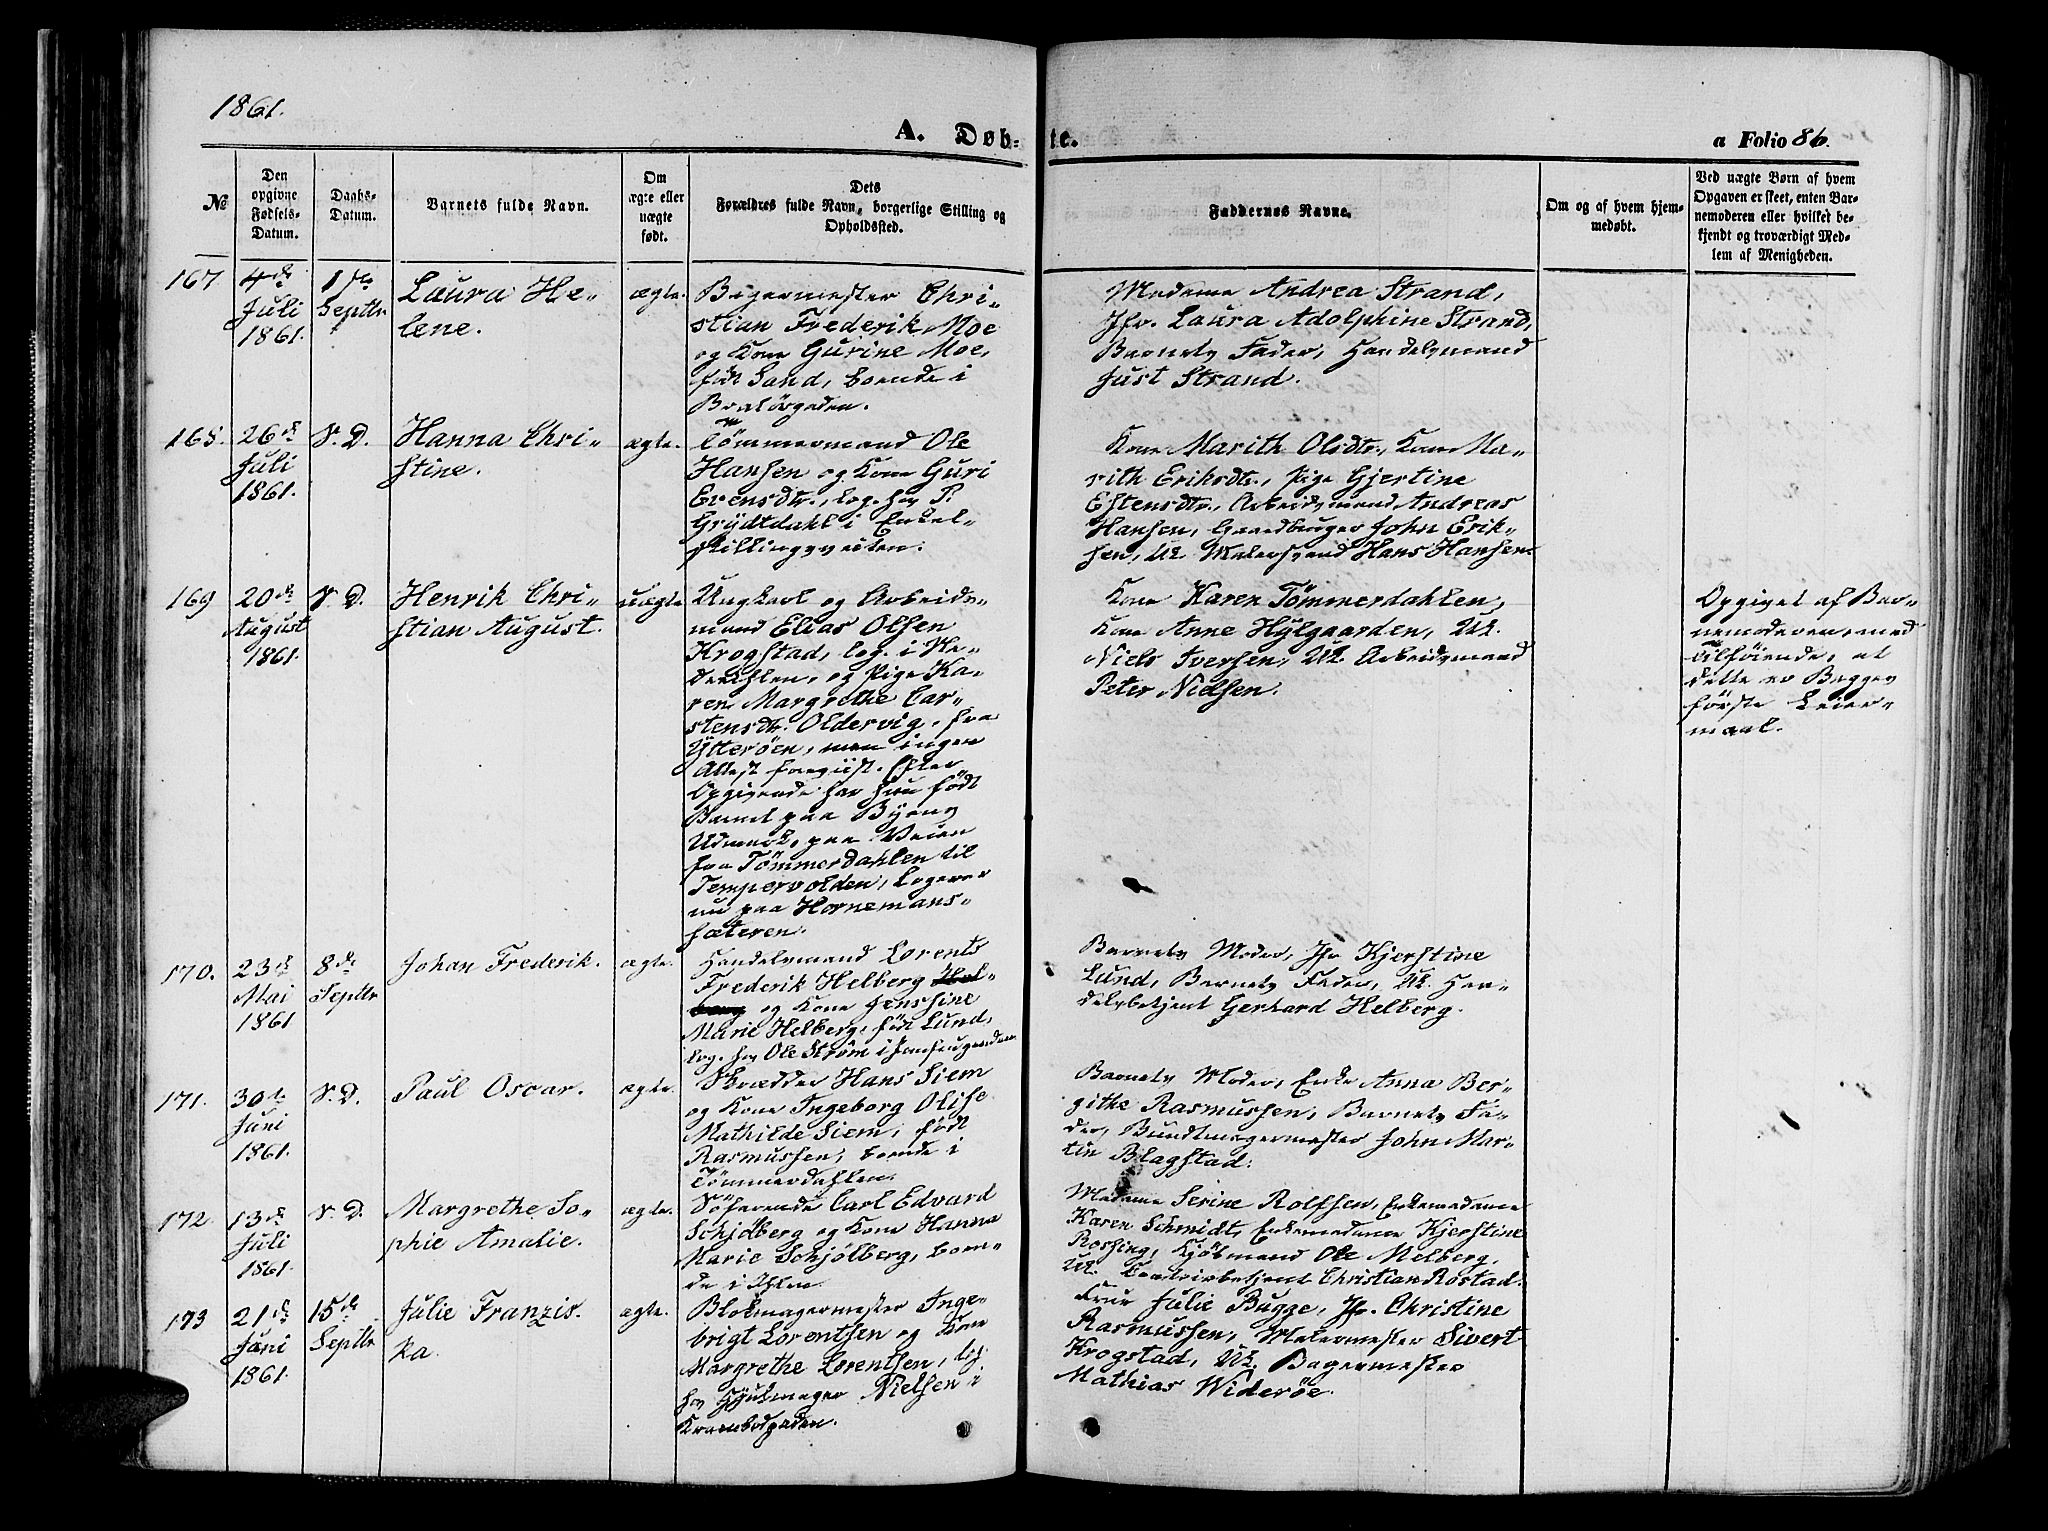 1861.
A. Døb-te.
a Folio 86.
№
Den
opgivne
Fødsels-
Datum.
Daabs-
Datum.
Barnets fulde Navn.
Om
ægte eller
uægte
født.
Dets
Forældres fulde Navn, borgerlige Stilling og
Opholdssted.
Faddernes Navne.
Om og af hvem hjem-
medøbt.
Ved uægte Børn af hvem
Opgaven er skeet, enten Bar-
nemoderen eller hvilket be-
kjendt og troværdigt Med-
lem af Menigheden.
167
4de
Juli
1861.
1ste
Septbr
Laura He-
lene.
ægte.
Bagermester Chri-
stian Frederik Moe
og Kone Gurine Moe,
født Sand, boende i
Bratørgaden.
Madame Andrea Strand,
Jfr. Laura Adolphine Strand,
Barnets Fader, Handelsmand
Just Strand.
168.
26de
Juli
1861.
S. D.
Hanna Chri-
stine.
ægte.
Tømmermand Ole
Hansen og Kone Guri
Evensdtr., log. hos P.
Grydtdahl i Enkel-
skillingsveiten.
Kone Marith Olsdtr., Kone Ma-
rith Eriksdtr., Pige Gjertine
Estensdtr., Arbeidsmand Andreas
Hansen, Gaardbruger John Erik-
sen, Uk. Malersvend Hans Hansen.
169
20de
August
1861.
S. D.
Henrik Chri-
stian August.
uægte
Ungkarl og Arbeids-
mand Elias Olsen
Krogstad, log. i
og Pige Ka-
ren Margrethe Car-
stensdtr. Oldervig, fra
Ytterøen, men ingen
Attest foreviist. Efter
Opgivende har hun født
Barnet paa Byens
Udmark, paa Veien
fra Tømmerdahlen til
Tempervolden, logerer
nu paa Hornemans-
sæteren.
Kone Karen Tømmerdahlen,
Kone Anne Hylgaarden, Uk.
Niels Iversen, Uk. Arbeidsmand
Peter Nielsen.
Opgivet af Bar-
nemoderen, med
Tilføiende, at
dette er Begges
første Leier-
maal.
170.
23de
Mai
1861
8de
Septbr
Johan Frederik.
ægte.
Handelsmand Lorents
Frederik Helberg
og Kone Jenssine
Marie Helberg, født Lund,
log. hos Ole Strøm i
Barnets Moder, Jfr Kjerstine
Lund, Barnets Fader, Uk. Han-
delsbetjent Gerhard Helberg.
171.
30te
Juni
1861.
S. D.
Paul Oscar.
ægte.
Skrædder Hans Siem
og Kone Ingeborg Olise
Mathilde Siem, født
Rasmussen, boende i
Tømmerdahlen.
Barnets Moder, Enke Anna Ber-
githe Rasmussen, Barnets Fa-
der, Bundtmagermester John Mar-
tin Blagstad.
172
13de
Juli
1861.
S. D.
Margrethe So-
phie Amalie.
ægte.
Søfarende Carl Edvard
Schjølberg og Kone Hanna
Marie Schjølberg, boen-
de i Ihlen.
Madame Serine Rolfsen, Enkemadame
Karen Schmidt, Enkemadame Kjerstine
Rossing, Kjøbmand Ole Melberg,
Uk. Contoirbetjent Christian Rostad.
173
21de
Juni
1861.
15de
Septbr
Julie Franzis-
ka.
ægte.
Blokmagermester Inge-
brigt Lorentsen og Kone
Margrethe Lorentsen, log.
hos Hjulmager Nielsen i
Krambodgaden.
Frue Julie Bugge, Jfr. Christine
Rasmussen, Malermester Sivert
Krogstad, Uk. Bagermester
Mathias Widerøe.